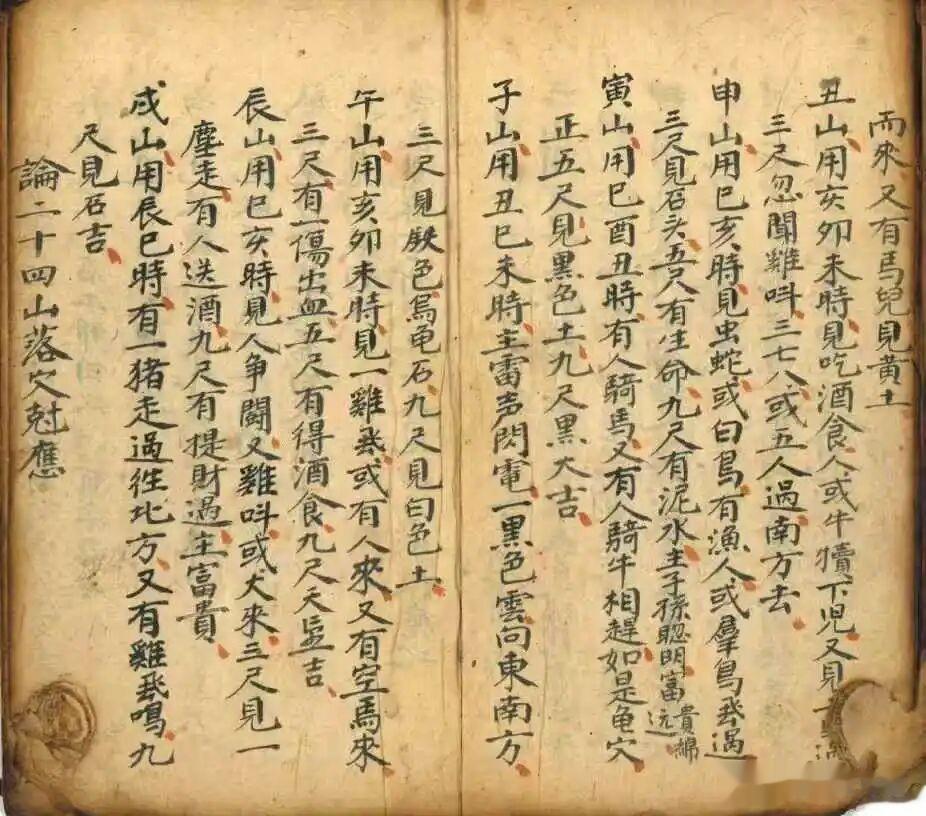 而來又有馬兒見黃土
丑山用亥卯未時見吃酒食人或牛犢下児又見
三尺忽聞雞呌三七八或五人過南方去
申山用巳亥時見虫蛇或白鳥有漁人或羣鳥飛過
三尺見石头五尺有生命九尺有泥水主子孫聦明富貴綿远
寅山用巳酉丑時有人騎馬又有人騎牛相趕如是龟穴
正五尺見黑色土九尺黑大吉
子山用丑巳未時主雷声閃電一黑色雲向東南方
三尺見 色烏龟石九尺見白色土
午山用亥卯未時見一雞飛或有人來又有空馬來
三尺有一傷出血五尺有得酒食九尺天 吉
辰山用巳亥時見人争闘又雞呌或犬來三尺見一
塵走有人送酒九尺有提財過主富貴
戌山用辰巳時有一猪走過徃北方又有雞飛鳴九
尺見石吉
論二十四山落穴尅應